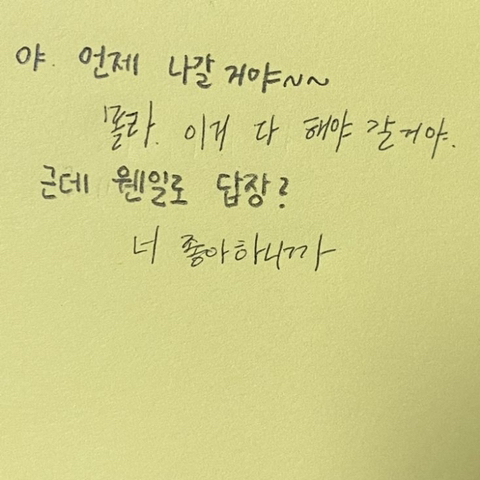 야. 언제 나갈 거야~~
몰라. 이거 다 해야 갈거야.
근데 웬일로 답장?
너 좋아하니까